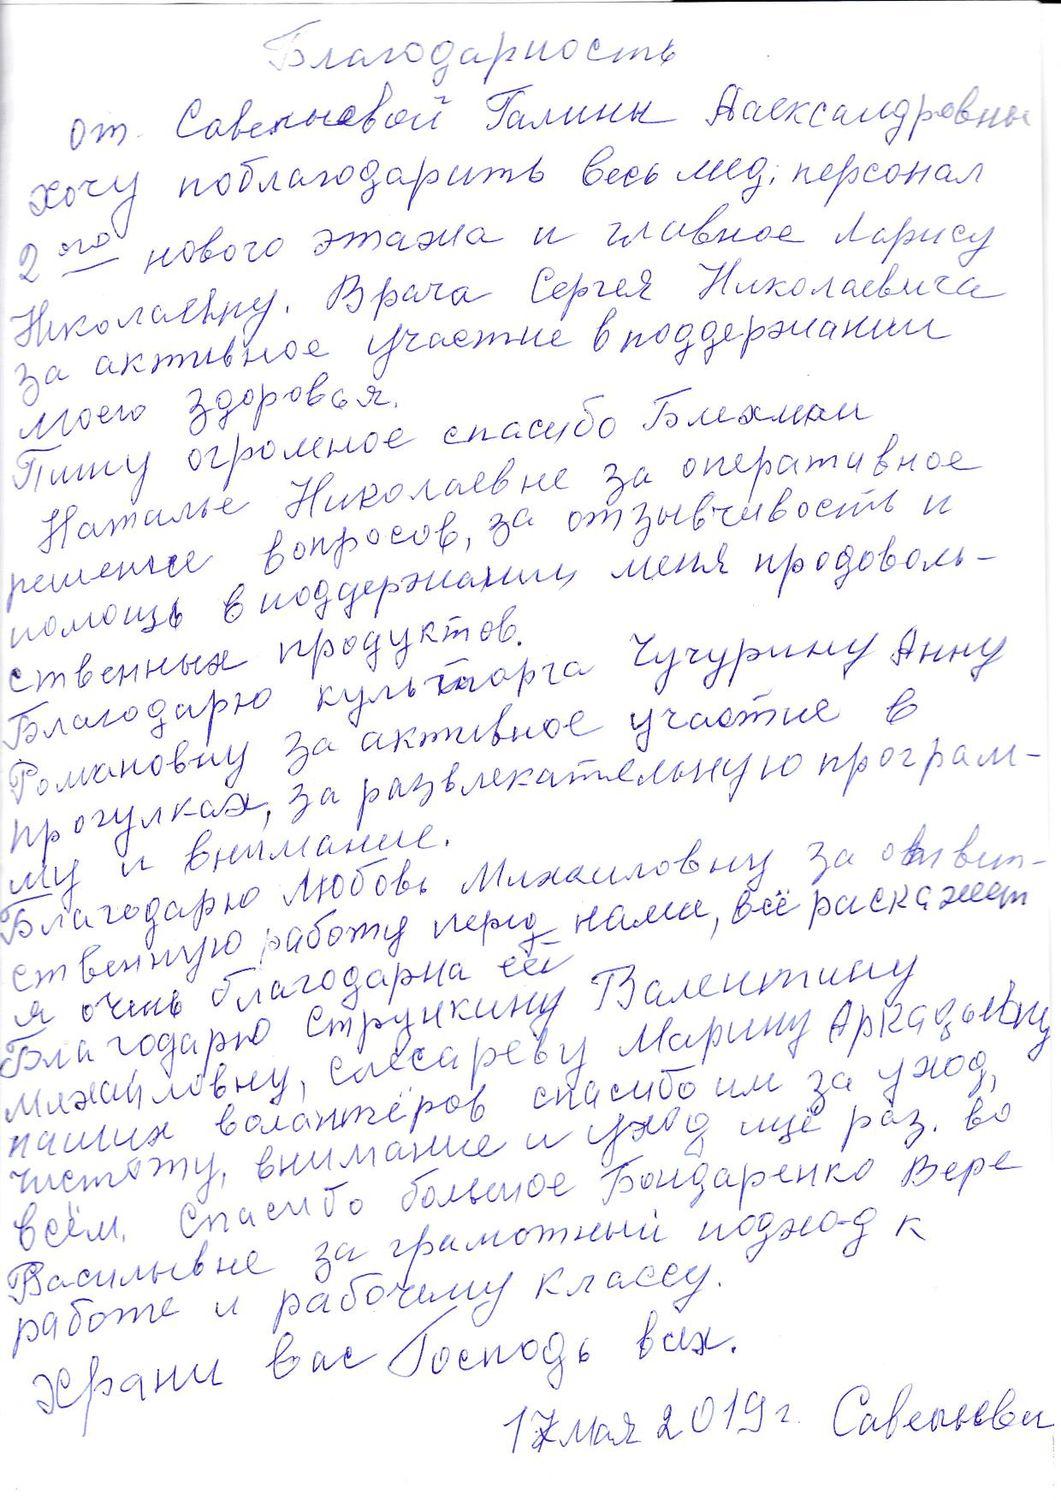 Благодарность
от Савельевой Галины Александровны
хочу поблагодарить весь мед. персонал
2ого нового этажа и главное Ларису
Николаевну. Врача Сергея Николаевича
за активное участие в поддержании
моего здоровья.
Пишу огромное спасибо Блехман
Наталье Николаевне за оперативное
решение вопросов, за отзывчивость и
помощь в поддержании меня продоволь-
ственных продуктов.
Благодарю культорга Чучурину Анну
Романовну за активное участие в
прогулках, за развлекательную програм-
му и внимание.
Благодарю Любовь Михаиловну за ответ-
ственную работу перед нами, всё раскажет
я очень благодарна ей
Благодарю Стрункину Валентину
Михайловну, Слесареву Марину Аркадьевну
наших волантёров спасибо им за уход,
чистоту, внимание и уход ищё раз. во
всём. Спасибо большое Бондаренко Вере
Васильевне за грамотный подход к
работе и рабочему классу.
Храни вас Господь всех.
17 мая 2019 г. Савельева